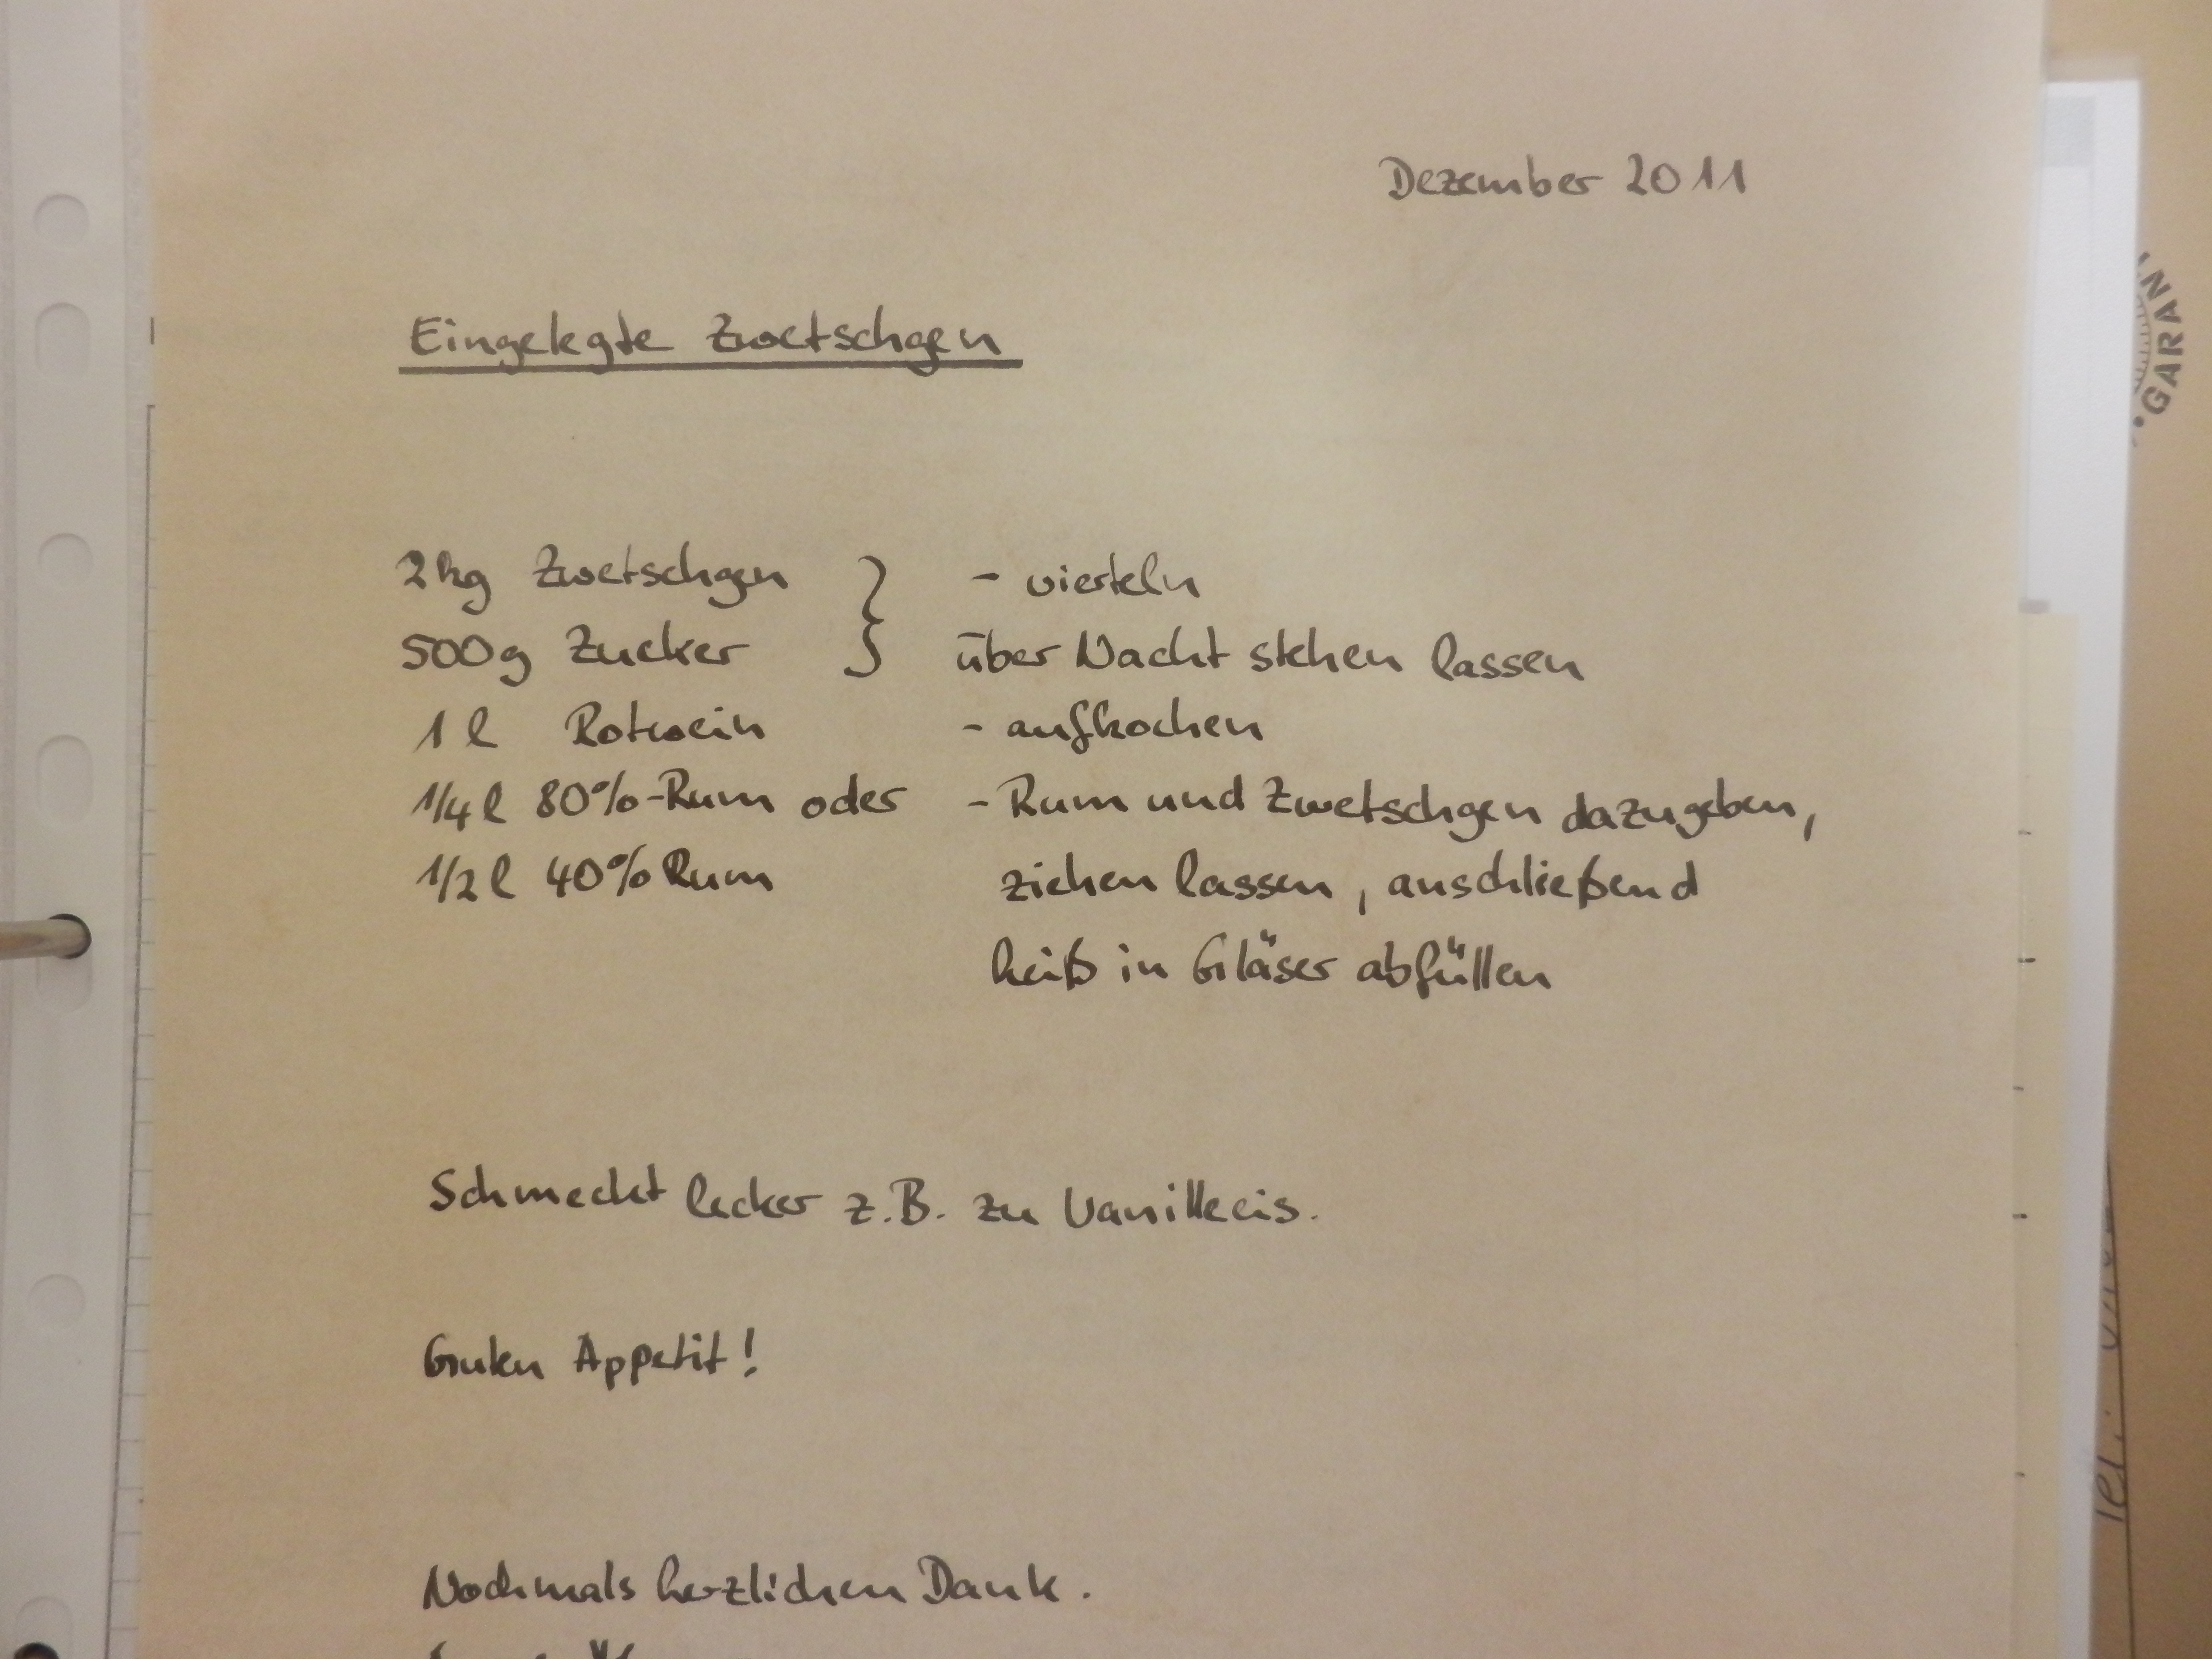 Dezember 2011
Eingelegte Zwetschgen
2kg Zwetschgen } - vierteln
500g Zucker } über Nacht stehen lassen
1 l Rotwein - aufkochen
1/4 l 80%-Rum oder - Rum und Zwetschgen dazugeben,
1/2 l 40% Rum ziehen lassen, anschließend
heiß in Gläser abfüllen
Schmeckt lecker z.B. zu Vanilleeis.
Guten Appetit!
Nochmals herzlichen Dank.